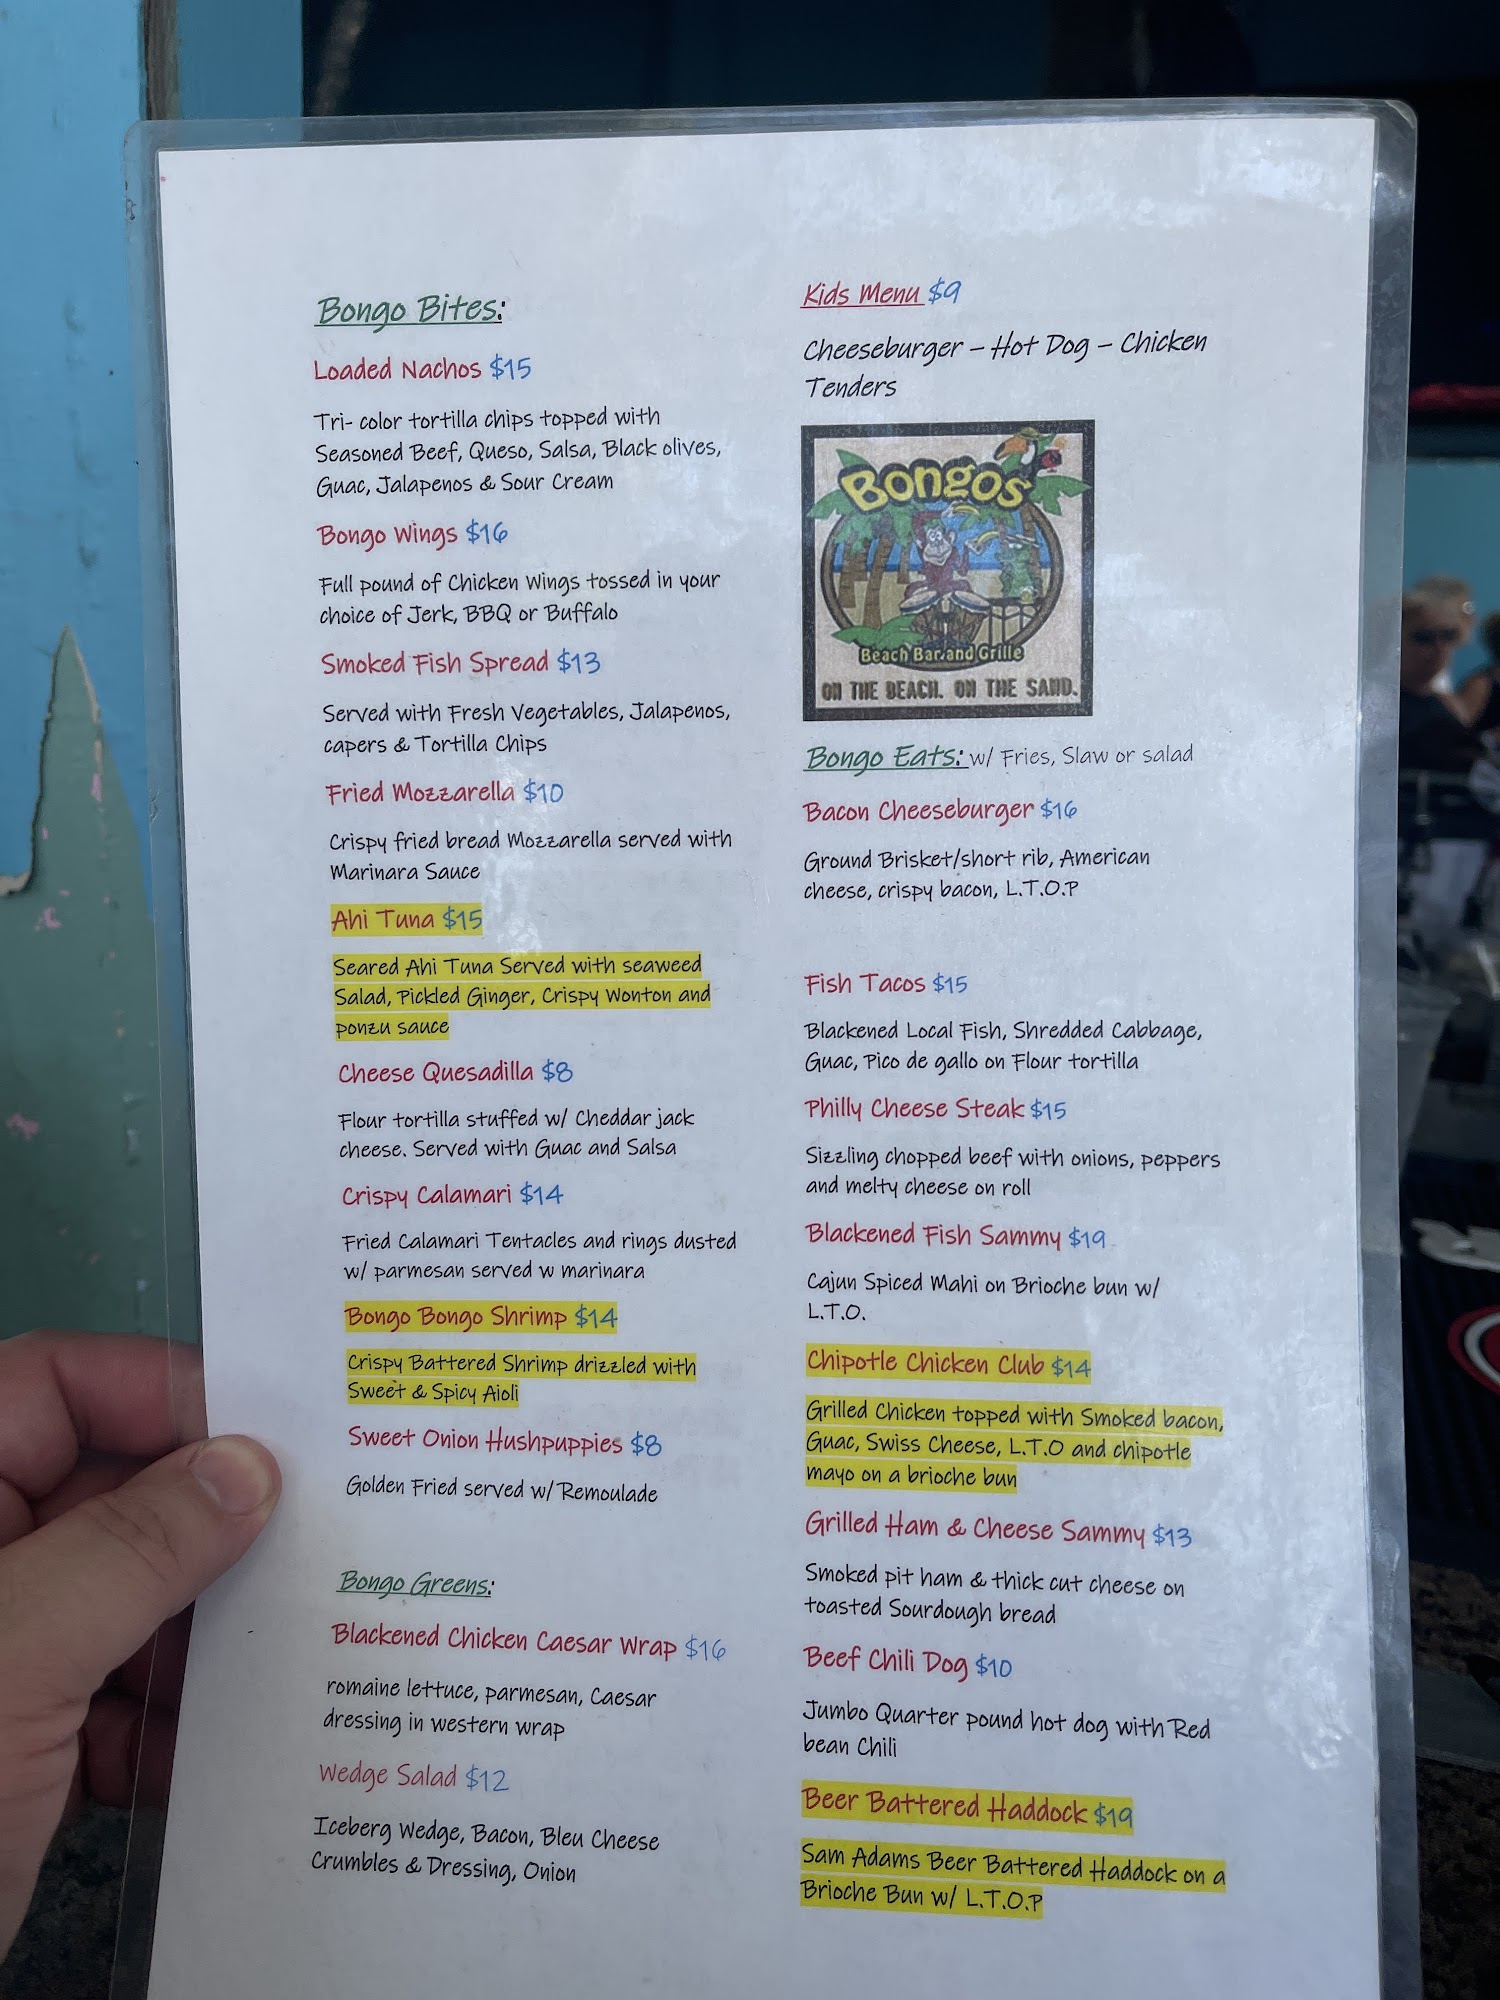 Bongo Bites:
Loaded Nachos $15
Tri- color tortilla chips topped with
Seasoned Beef, Queso, Salsa, Black olives,
Guac, Jalapenos & Sour Cream
Bongo Wings $16
Full pound of Chicken Wings tossed in your
choice of Jerk, BBQ or Buffalo
Smoked Fish Spread $13
Served with Fresh Vegetables, Jalapenos,
capers & Tortilla Chips
Fried Mozzarella $10
Crispy fried bread Mozzarella served with
Marinara Sauce
Ahi Tuna $15
Seared Ahi Tuna Served with seaweed
Salad, Pickled Ginger, Crispy Wonton and
ponzu sauce
Cheese Quesadilla $8
Flour tortilla stuffed w/ Cheddar jack
cheese. Served with Guac and Salsa
Crispy Calamari $14
Fried Calamari Tentacles and rings dusted
w/ parmesan served w marinara
Bongo Bongo Shrimp $14
Crispy Battered Shrimp drizzled with
Sweet & Spicy Aioli
Sweet Onion Hushpuppies $8
Golden Fried served w/ Remoulade
Bongo Greens:
Blackened Chicken Caesar Wrap $16
romaine lettuce, parmesan, Caesar
dressing in western wrap
Wedge Salad $12
Iceberg Wedge, Bacon, Bleu Cheese
Crumbles & Dressing, Onion
Kids Menu $9
Cheeseburger – Hot Dog – Chicken
Tenders
Bongos
Beach Bar and Grille
ON THE BEACH. ON THE SAND.
Bongo Eats: w/ Fries, Slaw or salad
Bacon Cheeseburger $16
Ground Brisket/short rib, American
cheese, crispy bacon, L.T.O.P
Fish Tacos $15
Blackened Local Fish, Shredded Cabbage,
Guac, Pico de gallo on Flour tortilla
Philly Cheese Steak $15
Sizzling chopped beef with onions, peppers
and melty cheese on roll
Blackened Fish Sammy $19
Cajun Spiced Mahi on Brioche bun w/
L.T.O.
Chipotle Chicken Club $14
Grilled Chicken topped with Smoked bacon,
Guac, Swiss Cheese, L.T.O and chipotle
mayo on a brioche bun
Grilled Ham & Cheese Sammy $13
Smoked pit ham & thick cut cheese on
toasted Sourdough bread
Beef Chili Dog $10
Jumbo Quarter pound hot dog with Red
bean Chili
Beer Battered Haddock $19
Sam Adams Beer Battered Haddock on a
Brioche Bun w/ L.T.O.P